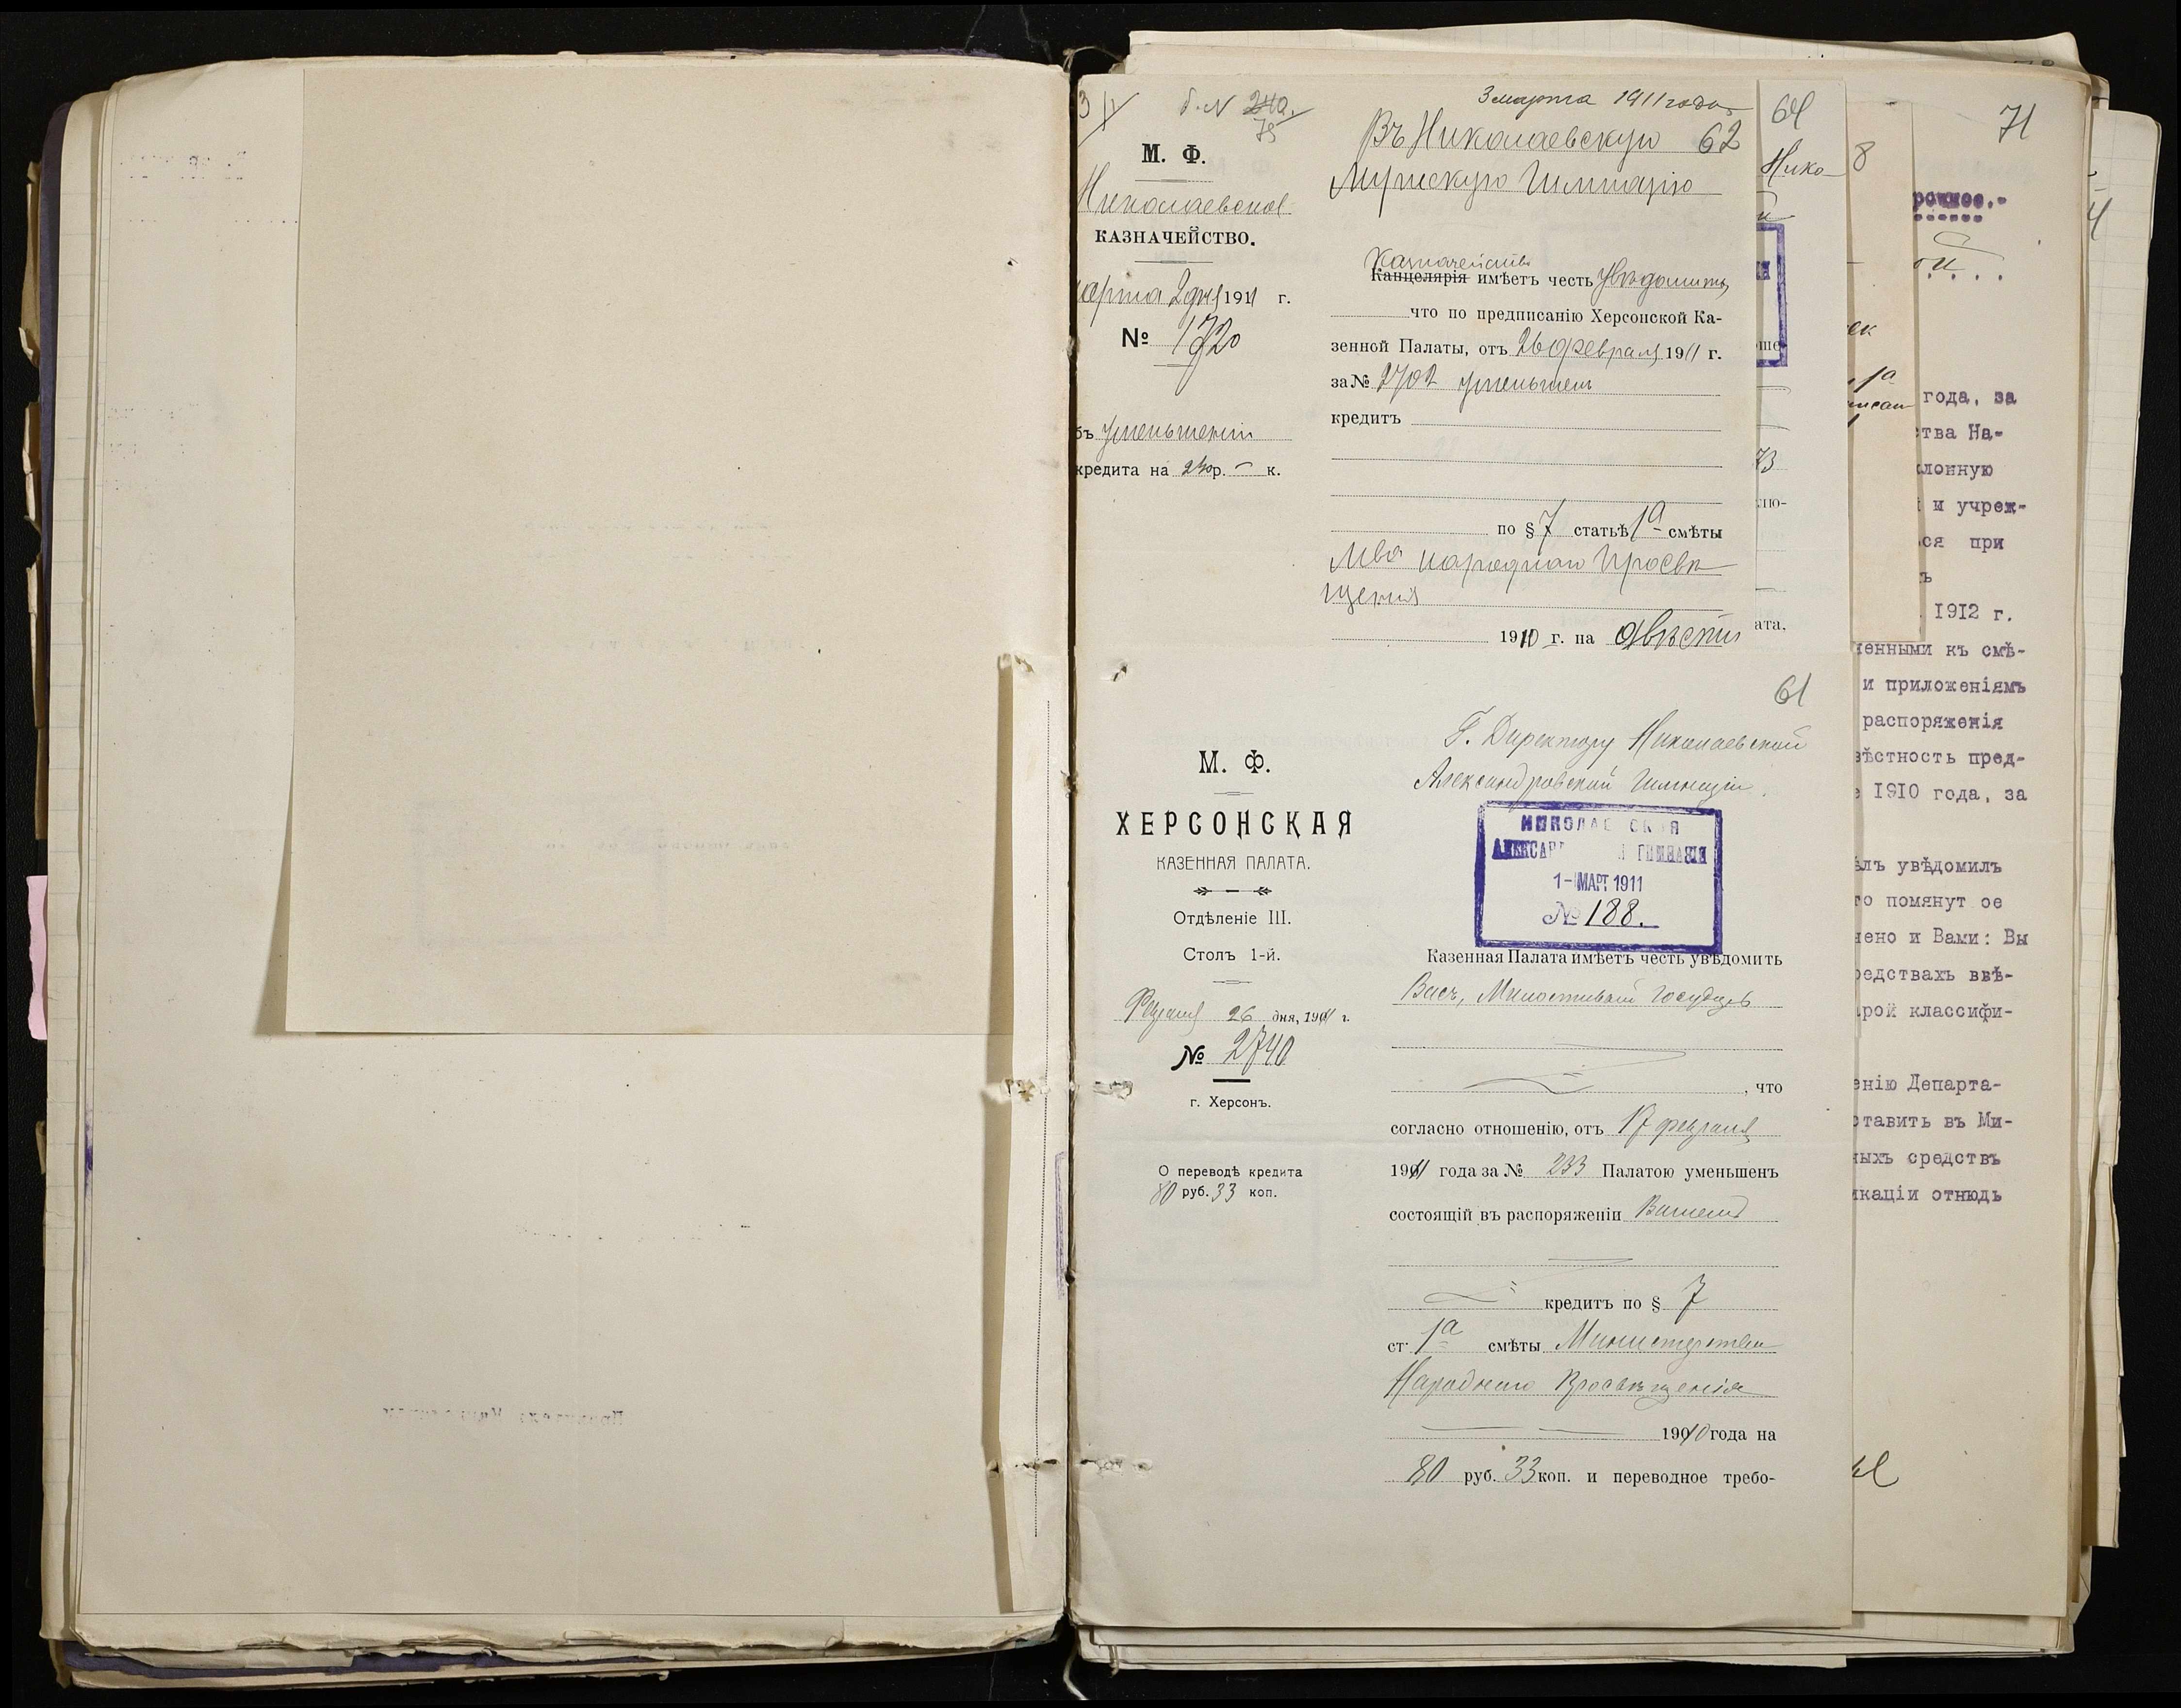 3 марта 1911 года
б. № 240.
75
М. Ф.
Николаевское
КАЗНАЧЕЙСТВО.
марта 2 дня 1911 г.
№ 1720
объ уменьшеніи
кредита на 240 р. – к.
Въ Николаевскую 62
Мужскую Гимназію
Казначейство
Канцелярія имѣетъ честь увѣдомить,
что по предписанію Херсонской Ка-
зенной Палаты, отъ 26 февраля 1911 г.
за № 2702 уменьшенъ
кредитъ
по § 7 статьѣ 1а смѣты
М-ва народнаго Просвѣ-
щенія
1910 г. на
61
Г. Директору Николаевской
Александровской Гимназіи.
М. Ф.
ХЕРСОНСКАЯ
КАЗЕННАЯ ПАЛАТА.
Отдѣленіе III.
Столъ 1-й.
Февраля 26 дня, 1911 г.
№ 2740
г. Херсонъ.
О переводѣ кредита
80 руб. 33 коп.
НИКОЛАЕВСКАЯ
АЛЕКСАНДРОВСКАЯ ГИМНАЗІЯ
1 - МАРТ 1911
№ 188.
Казенная Палата имѣетъ честь увѣдомить
Васъ, Милостивый Государь
, что
согласно отношенію, отъ 17 февраля
1911 года за № 233 Палатою уменьшенъ
состоящій въ распоряженіи Вашемъ
кредитъ по § 7
ст. 1а смѣты Министерства
Народнаго Просвѣщенія
1910 года на
80 руб. 33 коп. и переводное требо-
64
Нико-
8
71
года, за
ства На-
лонную
и учреж-
ся при
1912 г.
ненными къ смѣ-
и приложеніямъ
распоряженія
вѣстность пред-
1910 года, за
ѣлъ увѣдомилъ
го помянут ое
чено и Вами: Вы
редствахъ ввѣ-
рой классифи-
енію Департа-
ставить въ Ми-
ныхъ средствъ
икаціи отнюдь